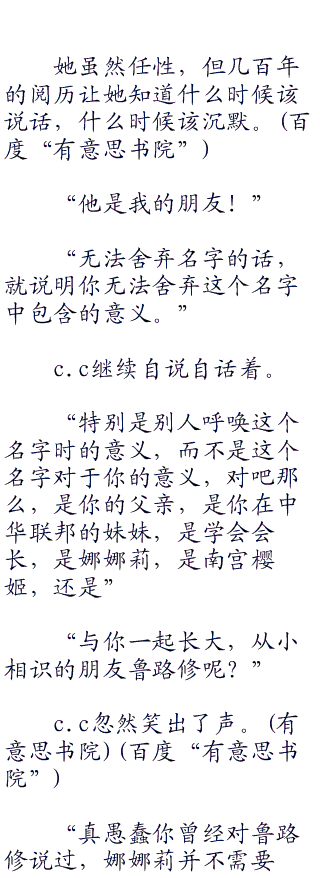 她虽然任性，但几百年
的阅历让她知道什么时候该
说话，什么时候该沉默。(百
度“有意思书院”)
“他是我的朋友！”
“无法舍弃名字的话，
就说明你无法舍弃这个名字
中包含的意义。”
c.c继续自说自话着。
“特别是别人呼唤这个
名字时的意义，而不是这个
名字对于你的意义，对吧那
么，是你的父亲，是你在中
华联邦的妹妹，是学会会
长，是娜娜莉，是南宫樱
姬，还是”
“与你一起长大，从小
相识的朋友鲁路修呢？”
c.c忽然笑出了声。(有
意思书院)(百度“有意思书
院”)
“真愚蠢你曾经对鲁路
修说过，娜娜莉并不需要